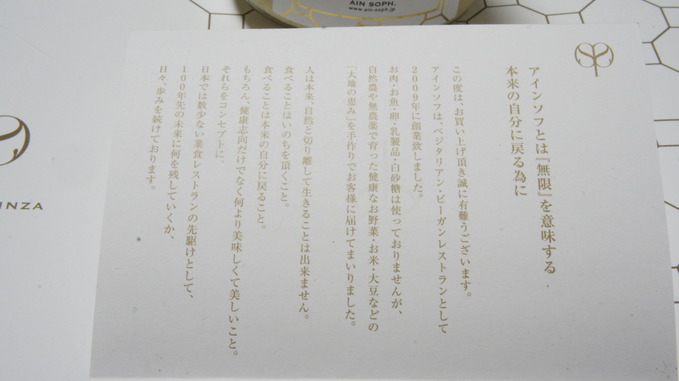 AIN SOPH.
www.ain-soph.jp
アインソフとは『無限』を意味する
本来の自分に戻る為に
この度は、お買い上げ頂き誠に有難うございます。
アインソフは、ベジタリアン・ビーガンレストランとして
2009年に創業致しました。
お肉・お魚・卵・乳製品・白砂糖は使っておりませんが、
自然農や無農薬で育った健康なお野菜・お米・大豆などの
「大地の恵み」を手作りでお客様に届けてまいりました。
人は本来、自然と切り離して生きることは出来ません。
食べることはいのちを頂くこと。
食べることは本来の自分に戻ること。
もちろん、健康志向だけでなく何より美味しくて美しいこと。
それらをコンセプトに、
日本では数少ない菜食レストランの先駆けとして、
100年先の未来に何を残していくか、
日々、歩みを続けております。
INZA